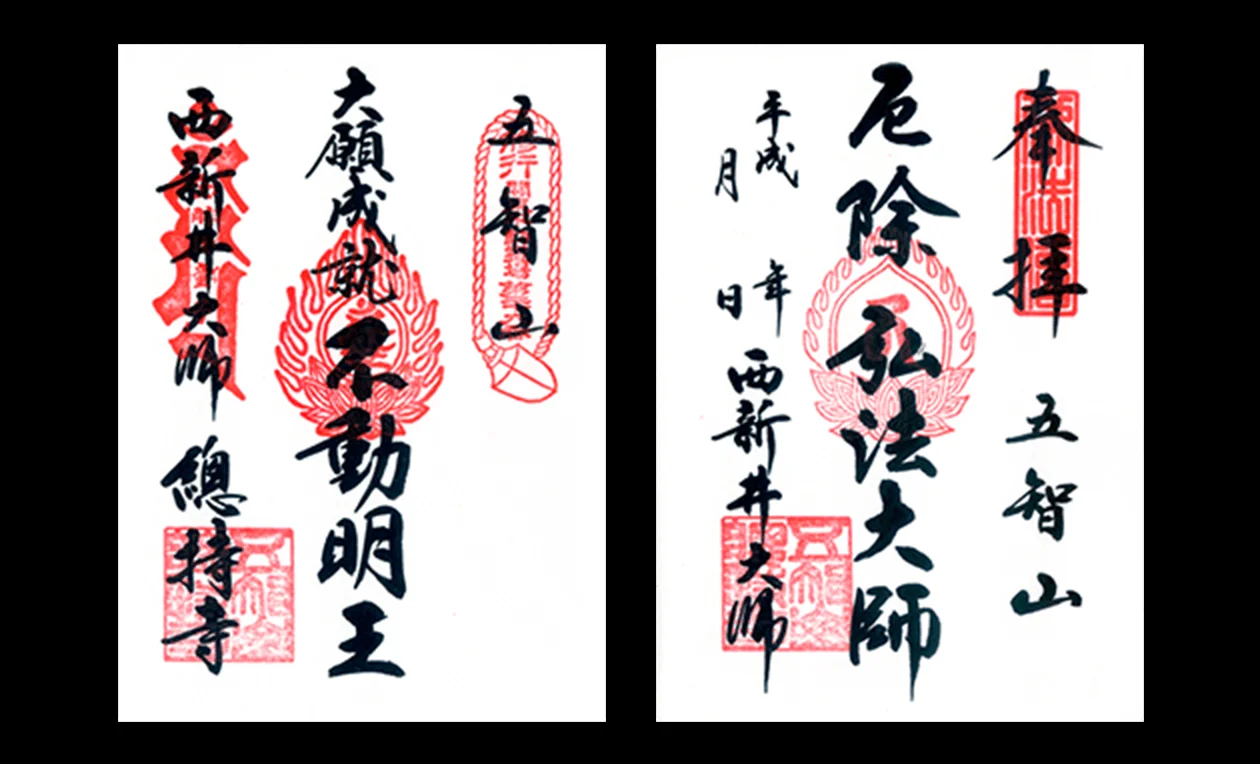 奉拝 五智山
厄除 弘法大師
平成 年
月 日
西新井大師
五智山
大願成就 不動明王
西新井大師 總持寺